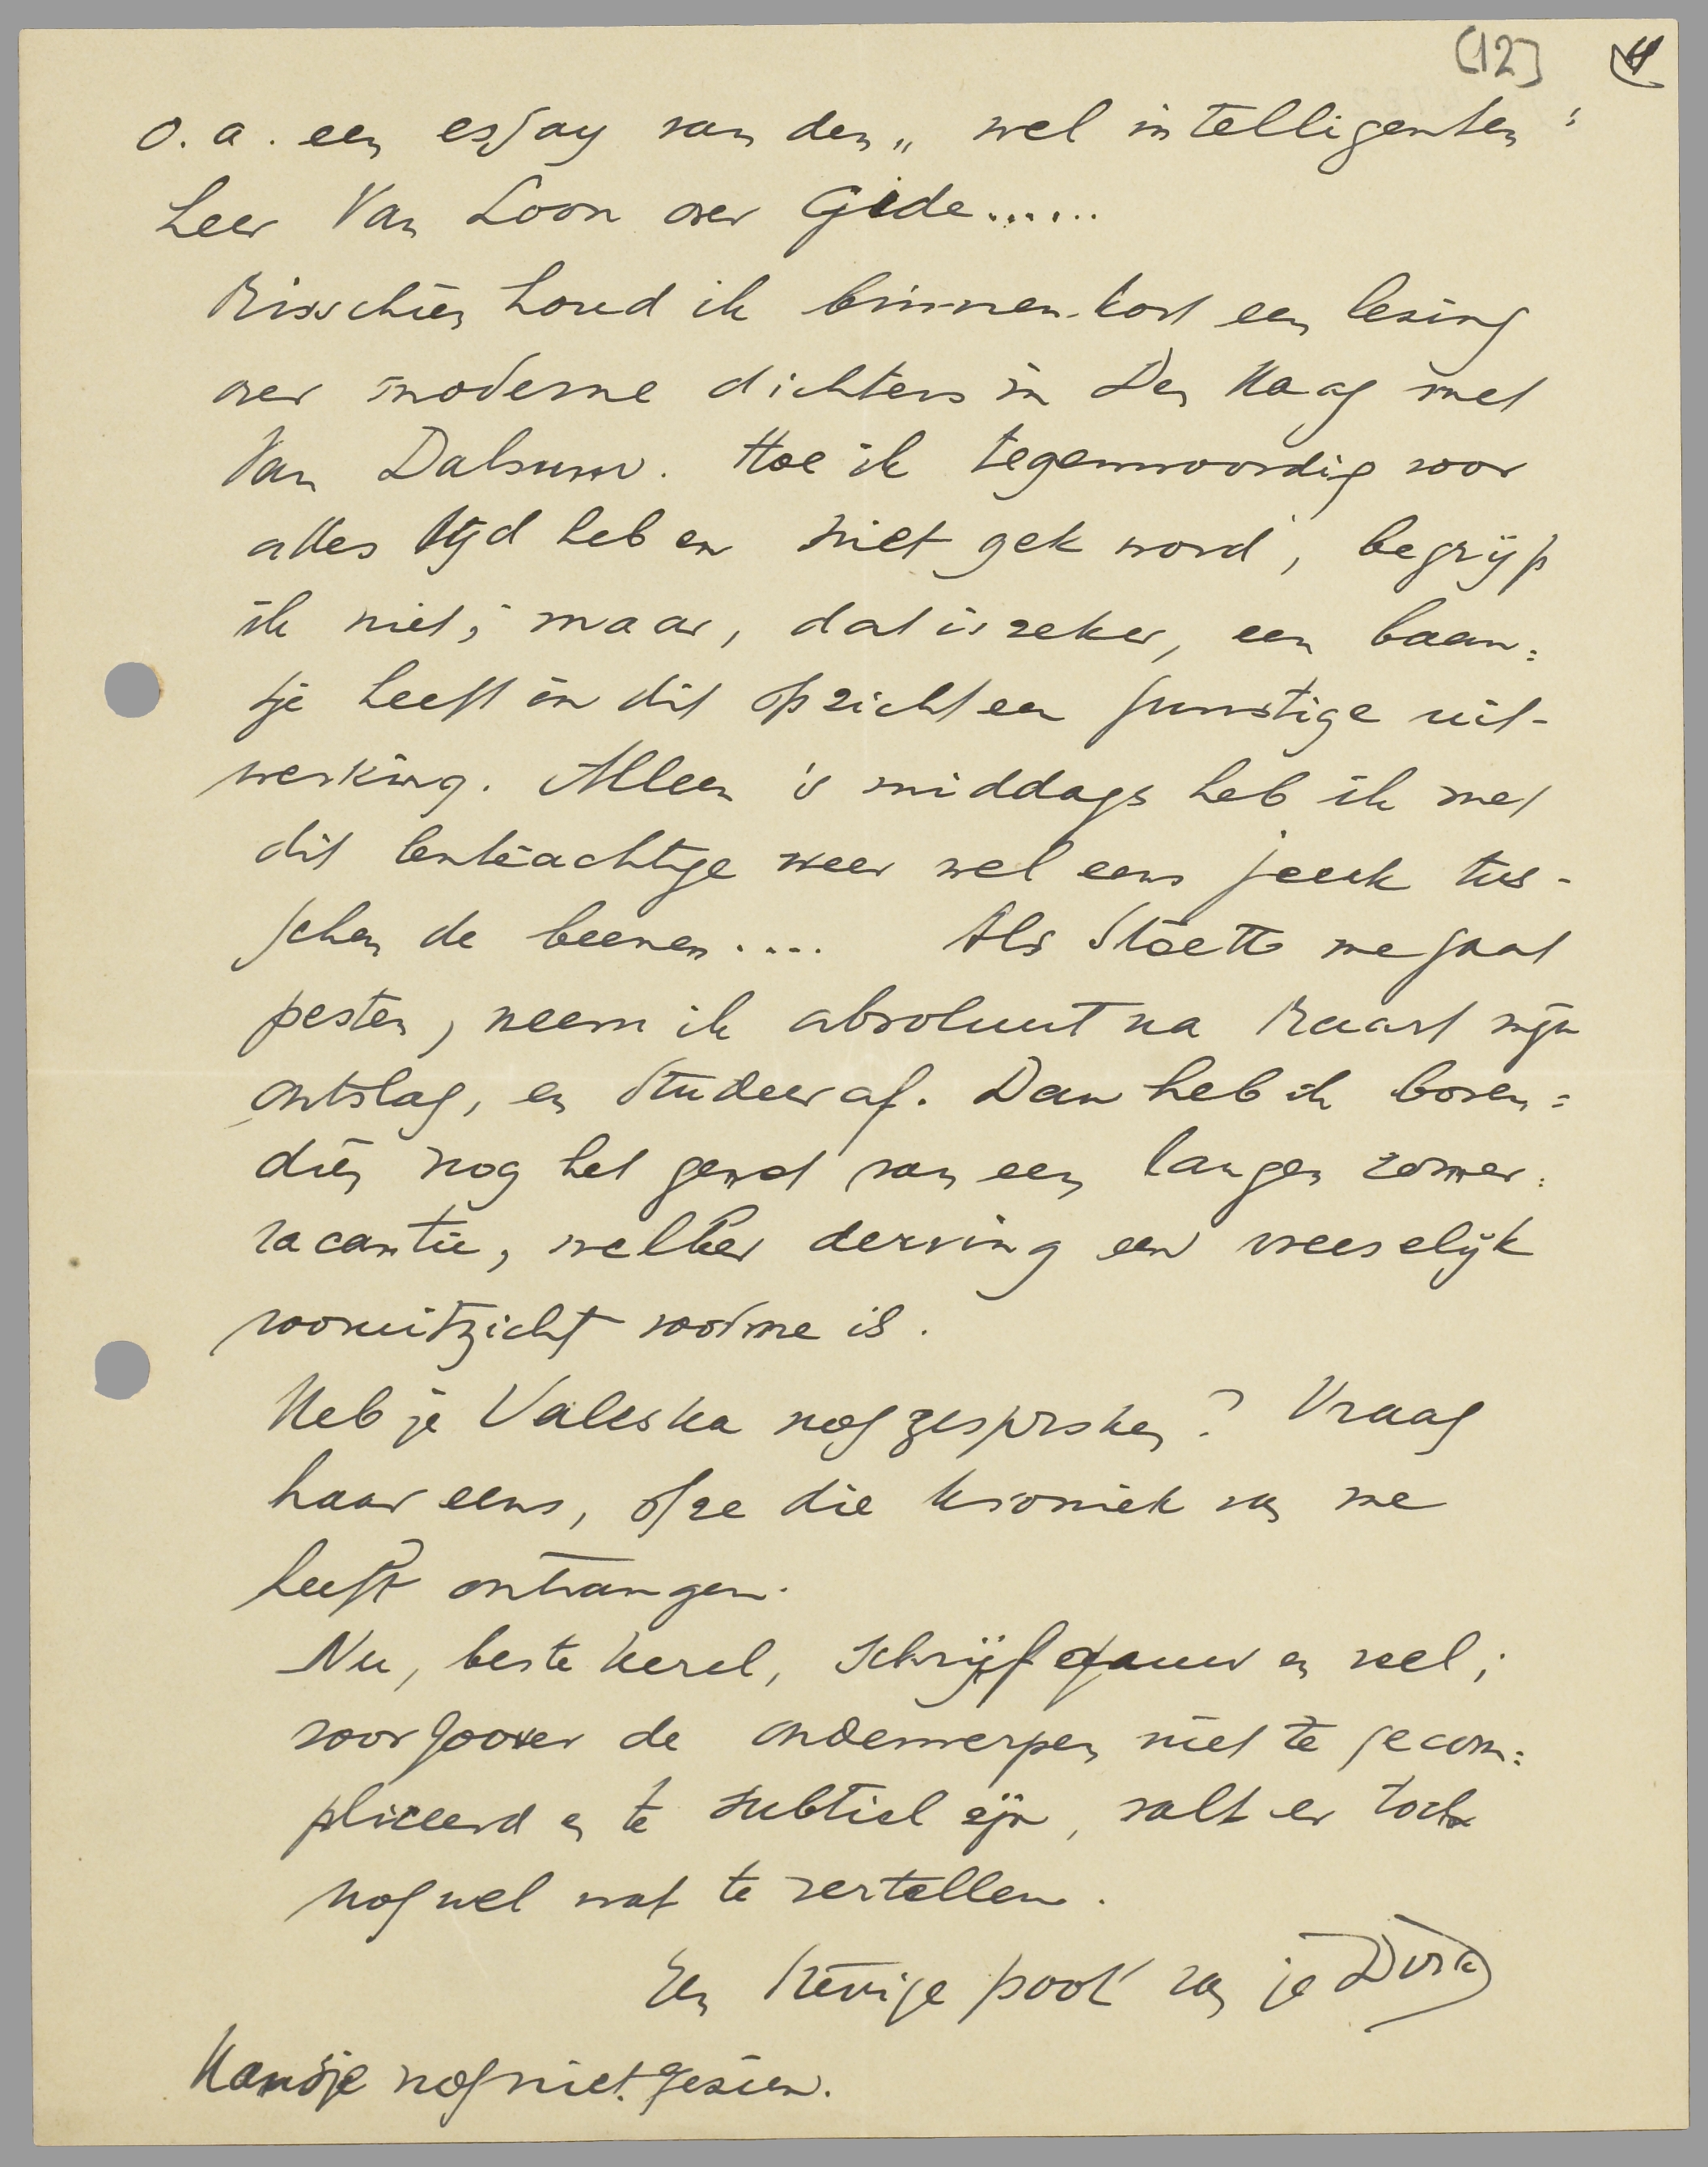 [12] 4
o.a. een essay van den „wel intelligenten"
heer Van Loon over Gide......
Misschien houd ik binnenkort een lezing
over moderne dichters in Den Haag met
Van Dalsum. Hoe ik tegenwoordig voor
alles tijd heb en niet gek word, begrijp
ik niet; maar, dat is zeker, een baan=
tje heeft in dit opzicht een gunstige uit-
werking. Alleen 's middags heb ik met
dit lenteachtige weer wel eens jeuk tus-
schen de beenen.... Als Stoett me gaat
pesten, neem ik absoluut na Maart mijn
ontslag, en studeer af. Dan heb ik boven=
dien nog het genot van een langen zomer=
vacantie, welker derving een vreeselijk
vooruitzicht voor me is.
Heb je Valeska nog gesproken? Vraag
haar eens, of ze die kroniek van me
heeft ontvangen.
Nu, beste kerel, schrijf gauw en veel;
voor zoover de onderwerpen niet te gecom=
pliceerd en te subtiel zijn, valt er toch
nog wel wat te vertellen.
Een stevige poot van je Dirk
Hansje nog niet gezien.